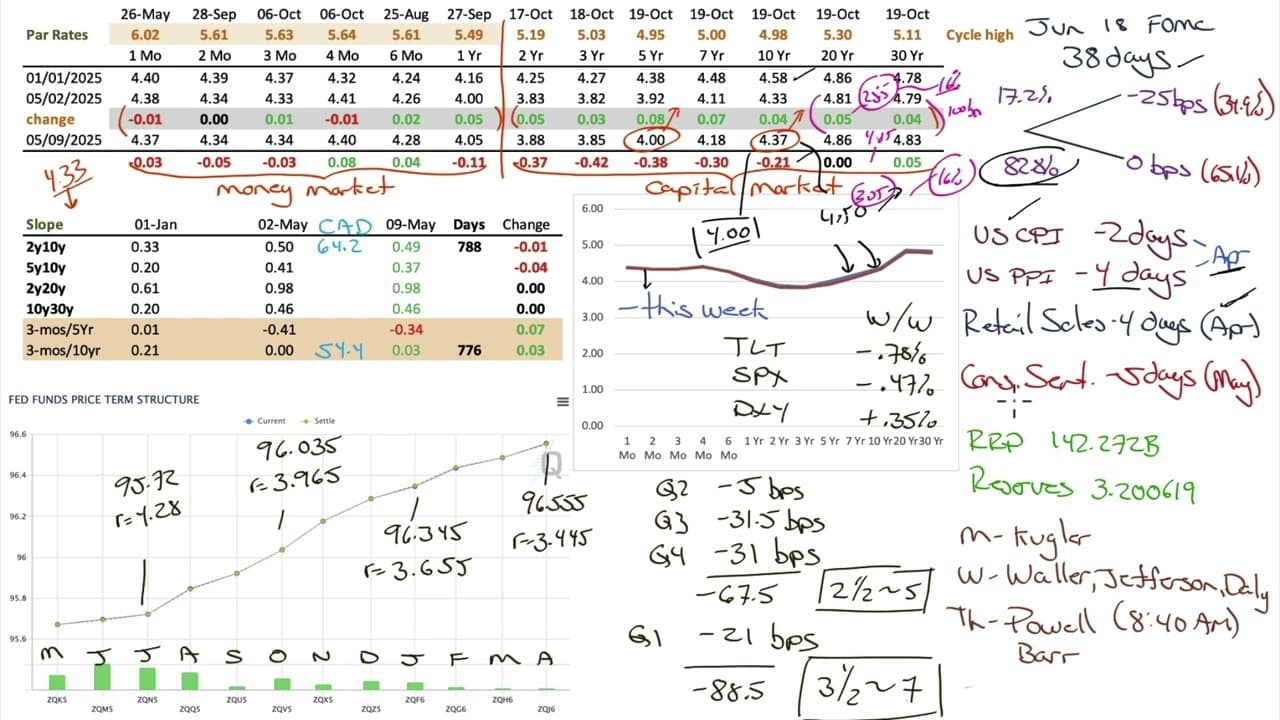 26-May 28-Sep 06-Oct 06-Oct 25-Aug 27-Sep 17-Oct 18-Oct 19-Oct 19-Oct 19-Oct 19-Oct 19-Oct
Par Rates 6.02 5.61 5.63 5.64 5.61 5.49 5.19 5.03 4.95 5.00 4.98 5.30 5.11 Cycle high
1 Mo 2 Mo 3 Mo 4 Mo 6 Mo 1 Yr 2 Yr 3 Yr 5 Yr 7 Yr 10 Yr 20 Yr 30 Yr
01/01/2025 4.40 4.39 4.37 4.32 4.24 4.16 4.25 4.27 4.38 4.48 4.58 4.86 4.78
05/02/2025 4.38 4.34 4.33 4.41 4.26 4.00 3.83 3.82 3.92 4.11 4.33 4.81 4.79
change -0.01 0.00 0.01 -0.01 0.02 0.05 0.05 0.03 0.08 0.07 0.04 0.05 0.04
05/09/2025 4.37 4.34 4.34 4.40 4.28 4.05 3.88 3.85 4.00 4.18 4.37 4.86 4.83
-0.03 -0.05 -0.03 0.08 0.04 -0.11 -0.37 -0.42 -0.38 -0.30 -0.21 0.00 0.05
4.33 money market Capital market
Jun 18 FOMC
38 days
17.2% -25bps (34.9%)
82.8% 0 bps (65.1%)
Slope 01-Jan 02-May CAD 09-May Days Change
2y10y 0.33 0.50 64.2 0.49 788 -0.01
5y10y 0.20 0.41 0.37 -0.04
2y20y 0.61 0.98 0.98 0.00
10y30y 0.20 0.46 0.46 0.00
3-mos/5Yr 0.01 -0.41 -0.34 0.07
3-mos/10yr 0.21 0.00 54.4 0.03 776 0.03
4.00 4.50
6.00
5.00
4.00
3.00
2.00
1.00
0.00
- this week
W/W
TLT -.78%
SPX -.47%
DXY +.35%
1 Mo 2 Mo 3 Mo 4 Mo 6 Mo 1 Yr 2 Yr 3 Yr 5 Yr 7 Yr 10 Yr 20 Yr 30 Yr
US CPI -2days
US PPI - 4 days
Apr
Retail Sales - 4 days (Apr)
Cons. Sent. - 5days (May)
RRP 142.272B
Reserves 3.200619
M- Kugler
W- Waller, Jefferson, Daly
Th- Powell (8:40 AM)
Barr
FED FUNDS PRICE TERM STRUCTURE
Current Settle
96.6
96.4
96.2
96
95.8
95.6
95.72
r=4.28
96.035
r=3.965
96.345
r=3.655
96.555
r=3.445
M J J A S O N D J F M A
ZQK5 ZQM5 ZQN5 ZQQ5 ZQU5 ZQV5 ZQX5 ZQZ5 ZQF6 ZQG6 ZQH6 ZQJ6
Q2 -5 bps
Q3 -31.5 bps
Q4 -31 bps
-67.5 2 1/2 ~ 5
Q1 -21 bps
-88.5 3 1/2 ~ 7